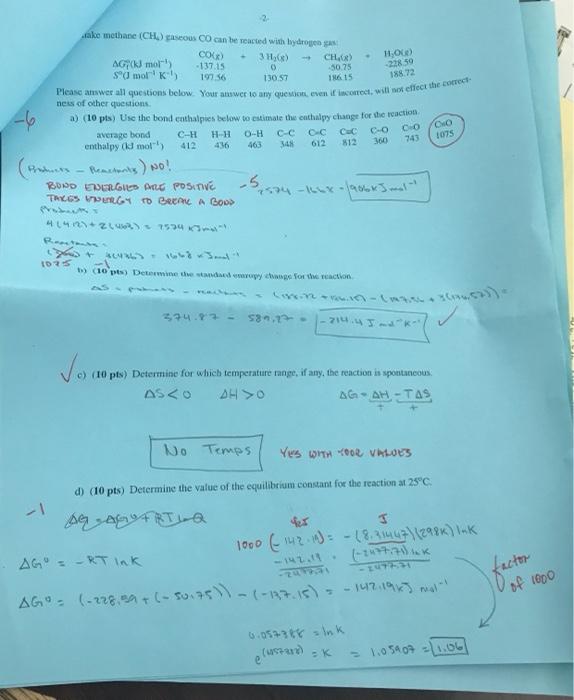 -2-
make methane (CH₄) gaseous CO can be reacted with hydrogen gas:
CO(g) + 3 H₂(g) → CH₄(g) + H₂O(g)
ΔG°f(kJ mol⁻¹) -137.15 0 -50.75 -228.59
S°(J mol⁻¹ K⁻¹) 197.56 130.57 186.15 188.72
Please answer all questions below. Your answer to any question, even if incorrect, will not effect the correct-
ness of other questions.
-6
a) (10 pts) Use the bond enthalpies below to estimate the enthalpy change for the reaction.
average bond C-H H-H O-H C-C C=C C≡C C-O C=O C≡O
enthalpy (kJ mol⁻¹) 412 436 463 348 612 812 360 743 1075
(Products - Reactants) NO!
BOND ENERGIES ARE POSITIVE
TAKES ENERGY TO BREAK A BOND
-5
2574 - 1668 = 906 kJ mol⁻¹
Products:
4(412) + 2(463) = 2574 kJ mol⁻¹
Reactants:
+ 3(436) = 1668 kJ mol⁻¹
1075 -1
b) (10 pts) Determine the standard entropy change for the reaction.
ΔS = products - reactants = (188.72 + 186.15) - (197.56 + 3(130.57)) =
374.87 - 589.27 = -214.4 J mol⁻¹K⁻¹ ✓
✓ c) (10 pts) Determine for which temperature range, if any, the reaction is spontaneous.
ΔS<0 ΔH>0 ΔG = ΔH - TΔS
+ +
No Temps YES WITH YOUR VALUES
d) (10 pts) Determine the value of the equilibrium constant for the reaction at 25°C.
-1
ΔG = ΔG° + RT ln Q
J
1000 (-142.19) = -(8.31447)(298K) lnK
ΔG° = -RT lnK
-142.19 (-2477.71) ln K
-2477.71 -2477.71
ΔG° = (-228.59 + (-50.75)) - (-137.15) = -142.19 kJ mol⁻¹
factor
of 1000
0.057388 = lnK
e^(.057388) = K = 1.05907 = 1.06